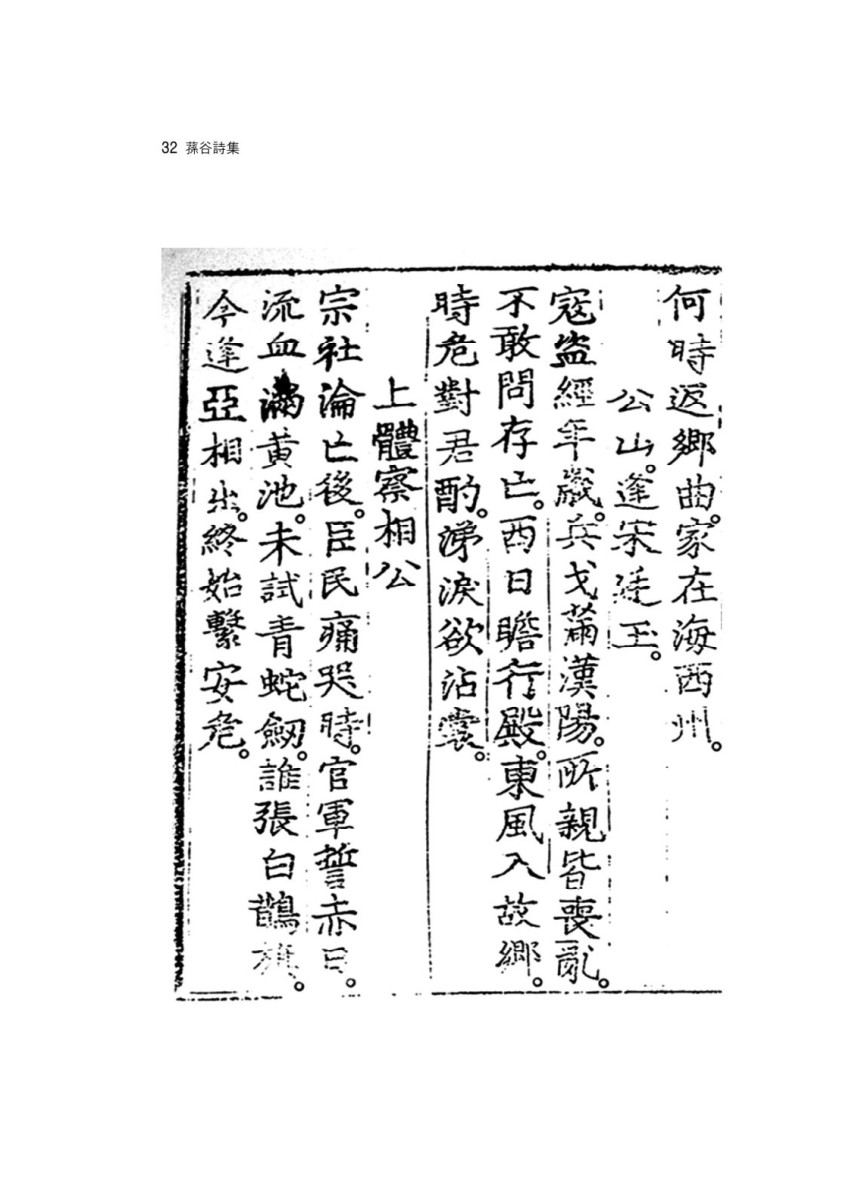 32 蓀谷詩集
何時返鄉曲。家在海西州。
公山。逢宋廷玉。
寇盜經年歲。兵戈滿漢陽。所親皆喪亂。
不敢問存亡。西日瞻行殿。東風入故鄉。
時危對君酌。涕淚欲沾裳。
上體察相公
宗社淪亡後。臣民痛哭時。官軍誓赤日。
流血滿黃池。未試青蛇劒。誰張白鵲旗。
今逢亞相出。終始繫安危。